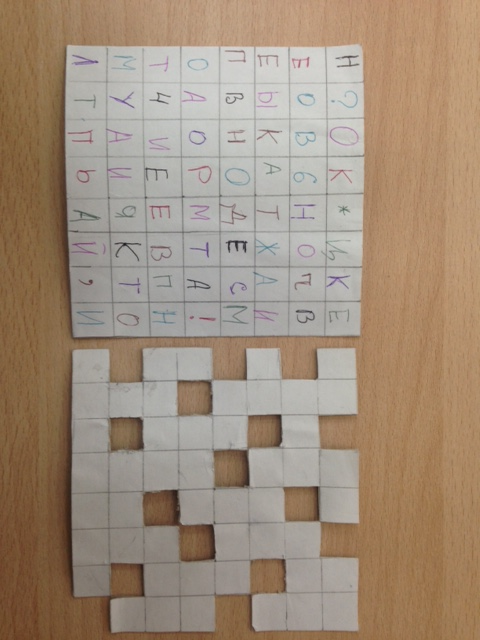 Н ? О К * Ц К Е
Е О В б Н О П В
Е Ы К А Т Ж А И
П В Н О Д Е С М
О Д О Р М Т А !
Т Ч И Е Е В П Н
М У А И Я К Т О
Л Т П Ь Д Й , И